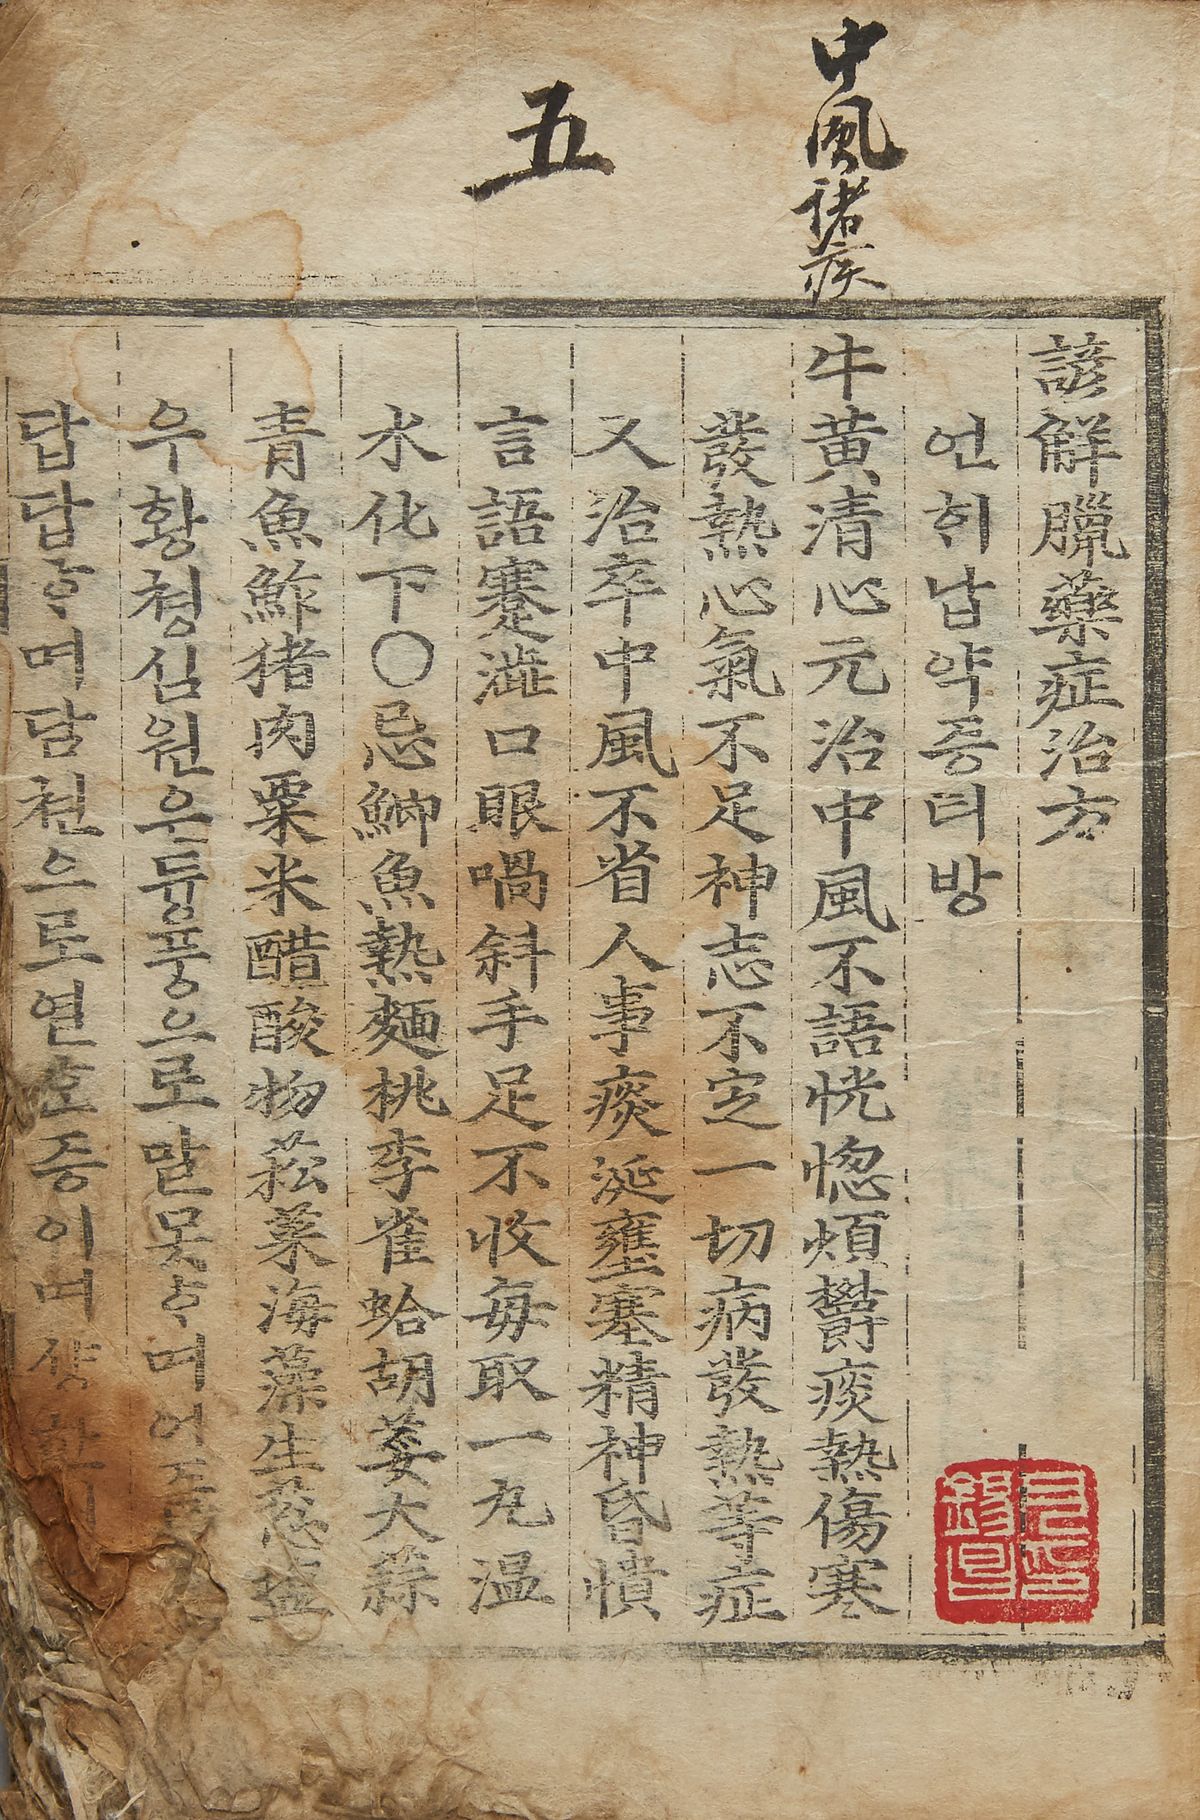 中風諸疾
五
諺解臘藥症治方
언ᄒᆡ납약증티방
牛黃清心元治中風不語恍惚煩鬱痰熱傷寒
發熱心氣不足神志不定一切病發熱等症
又治卒中風不省人事痰涎壅塞精神昏憒
言語蹇澁口眼喎斜手足不收每取一丸温
水化下○忌鯽魚熱麵桃李雀蛤胡荽大蒜
青魚鮓猪肉粟米醋酸物菘菜海藻生葱
우황쳥심원은듕풍으로말못ᄒᆞ며어
답답ᄒᆞ며담쳔으로열ᄒᆞᆫ증이며샹한